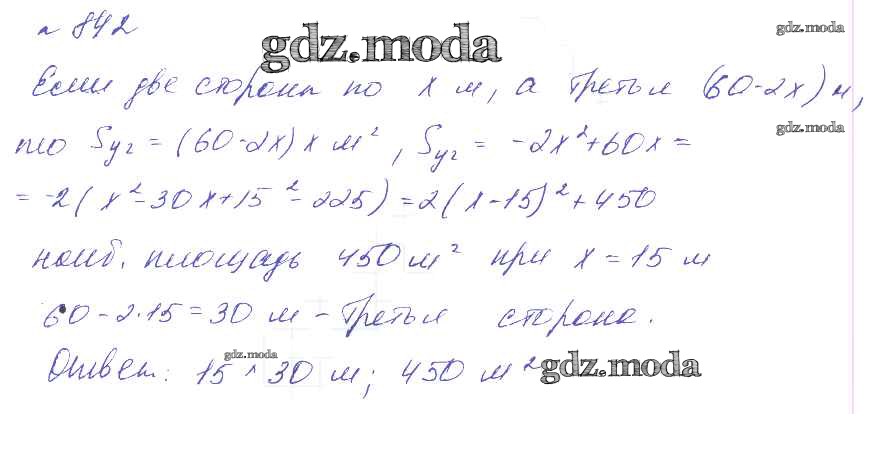 № 842
gdz.moda
gdz.moda
Если две стороны по x м, а третья (60-2x) м,
gdz.moda
то Sуч = (60-2x) x м², Sуч = -2x²+60x =
= -2(x²-30x+15²-225) = 2(x-15)²+450
наиб. площадь 450 м² при x = 15 м
60-2·15=30 м - третья сторона.
gdz.moda
Ответ: 15 × 30 м; 450 м²
gdz.moda